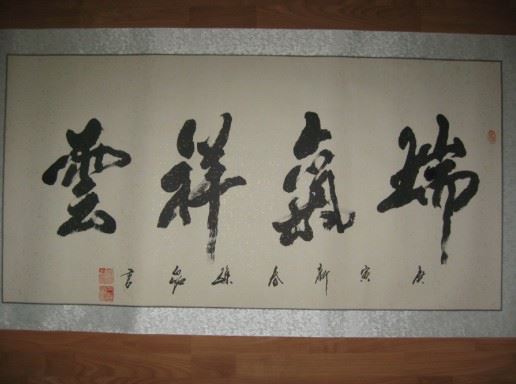 瑞氣祥雲
庚寅新春
書